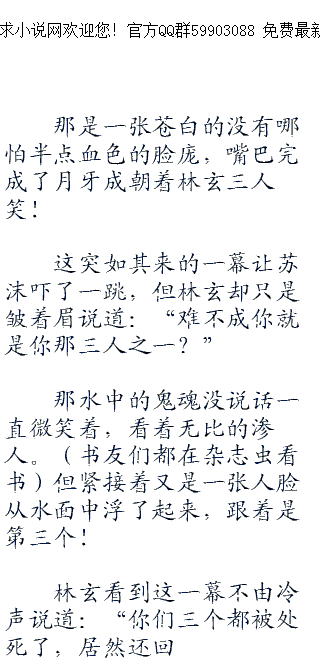 求小说网欢迎您！官方QQ群59903088 免费最新
那是一张苍白的没有哪
怕半点血色的脸庞，嘴巴完
成了月牙成朝着林玄三人
笑！
这突如其来的一幕让苏
沫吓了一跳，但林玄却只是
皱着眉说道：“难不成你就
是你那三人之一？”
那水中的鬼魂没说话一
直微笑着，看着无比的渗
人。（书友们都在杂志虫看
书）但紧接着又是一张人脸
从水面中浮了起来，跟着是
第三个！
林玄看到这一幕不由冷
声说道：“你们三个都被处
死了，居然还回